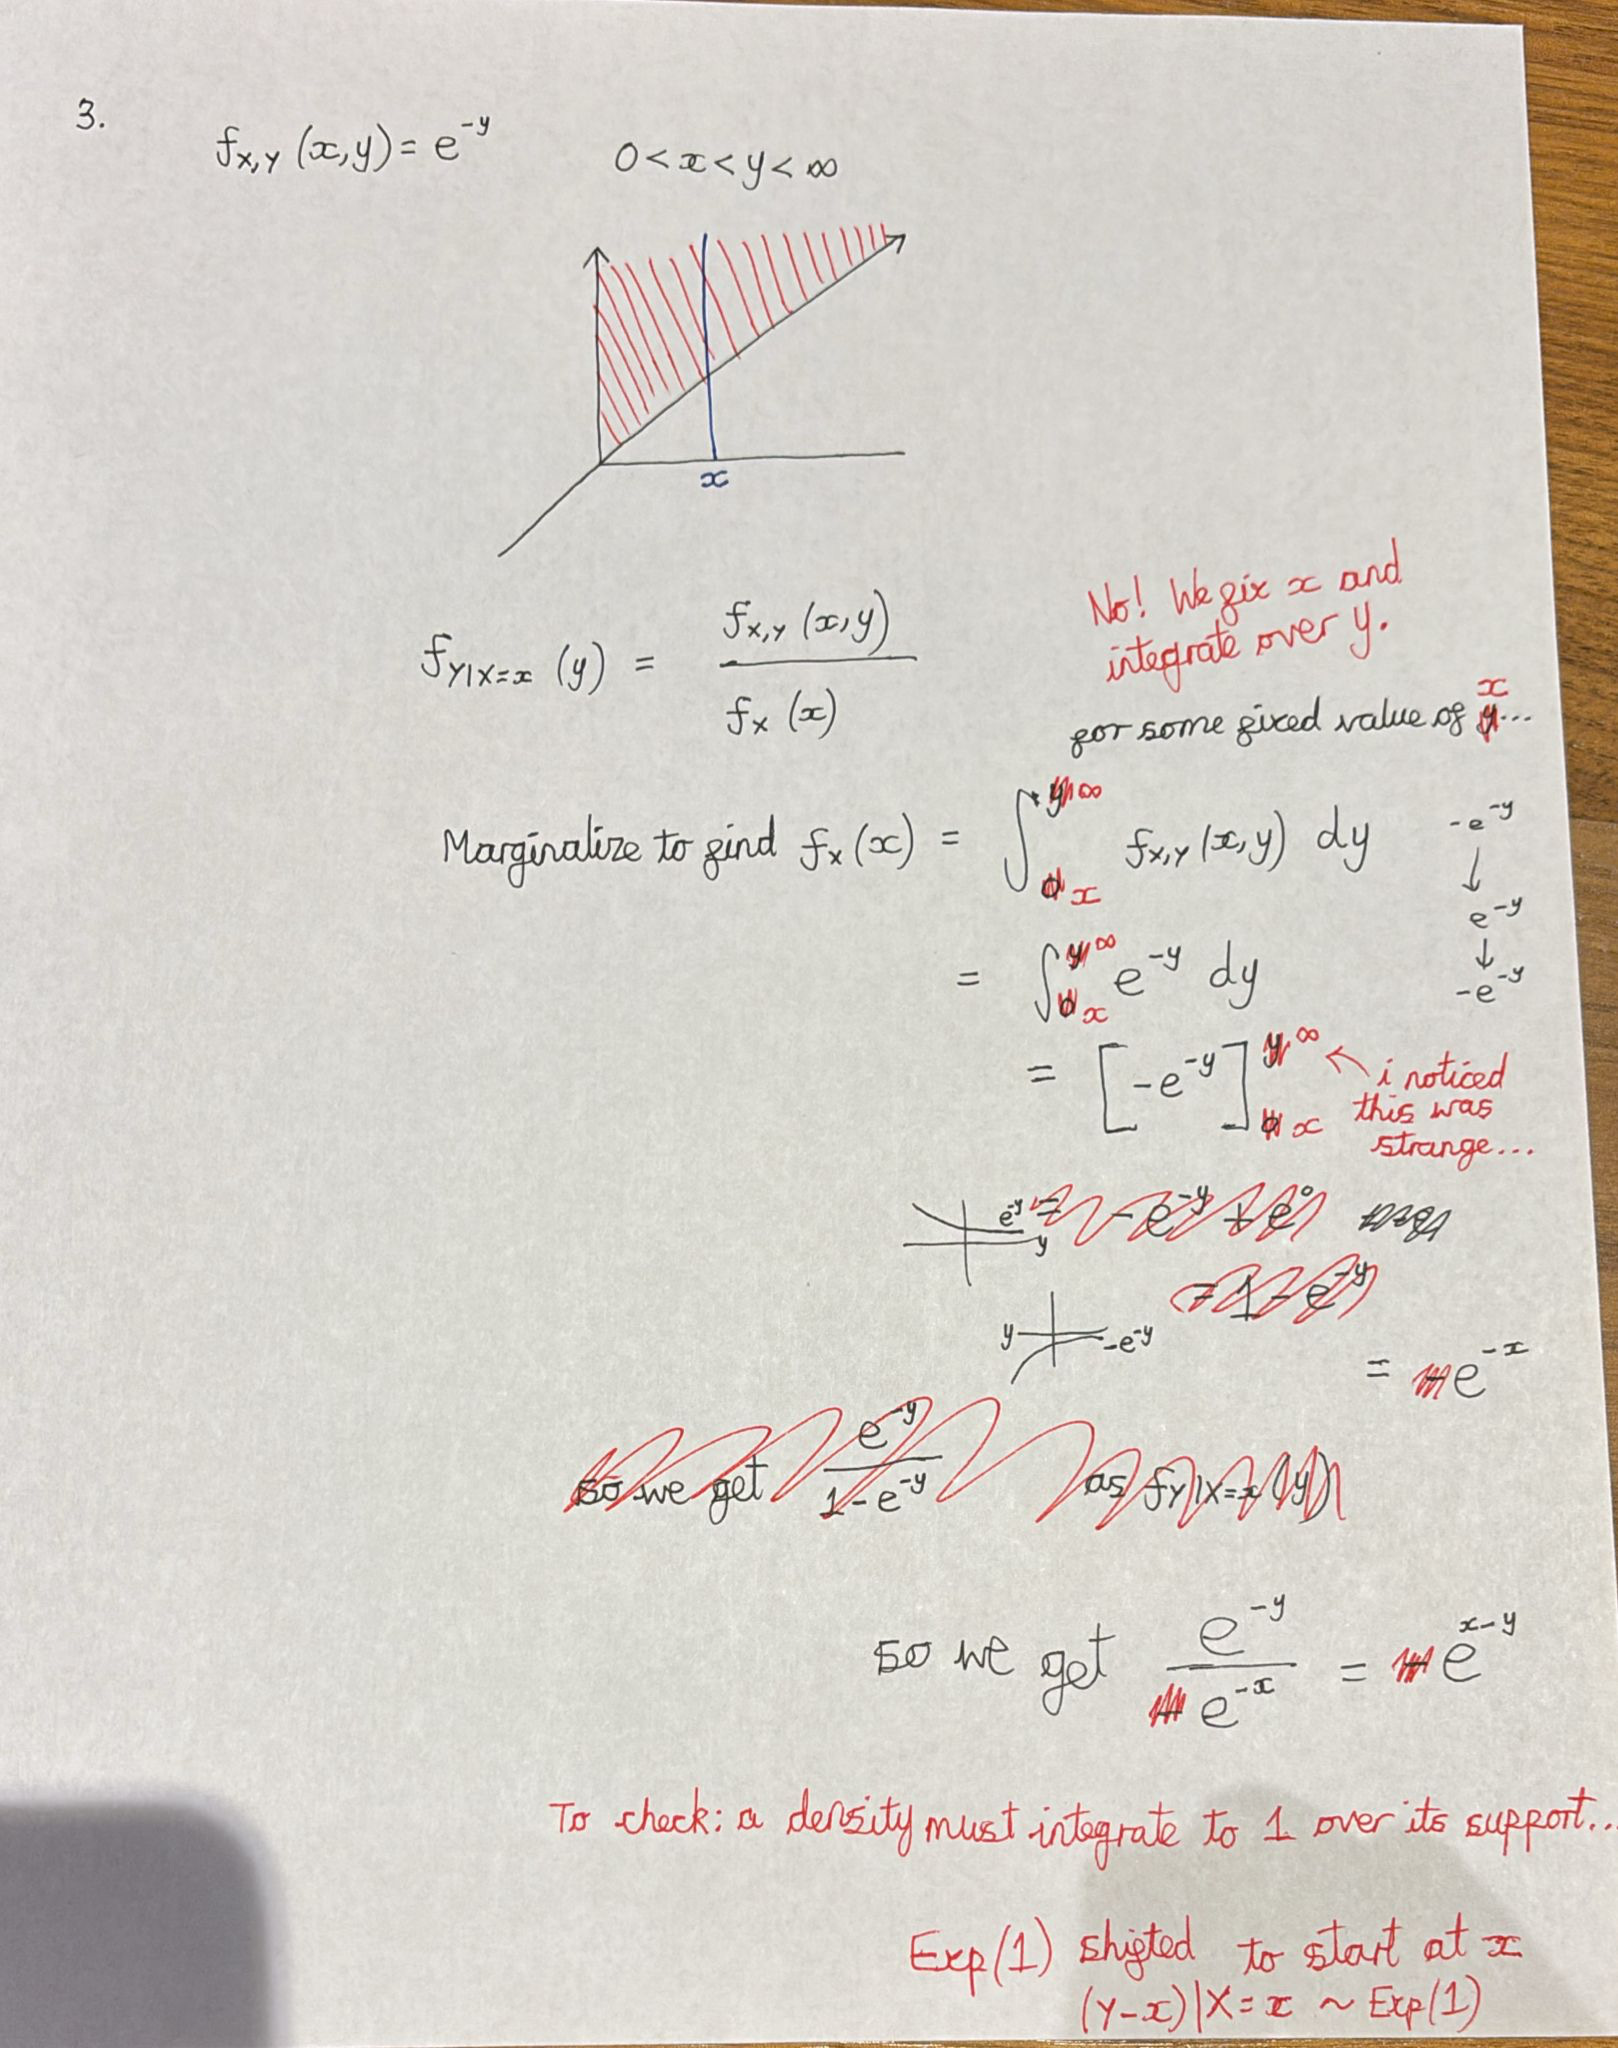 3.
f_{X,Y} (x,y) = e^{-y}    0 < x < y < ∞
x
No! We fix x and
integrate over y.
f_{Y|X=x} (y) = f_{X,Y} (x,y) / f_X (x)
x
for some fixed value of y...
Marginalize to find f_X (x) = ∫_{0 x}^{y ∞} f_{X,Y} (x,y) dy
-e^{-y}
↓
e^{-y}
↓
-e^{-y}
= ∫_{0 x}^{y ∞} e^{-y} dy
= [-e^{-y}]_{0 x}^{y ∞} ← i noticed
this was
strange...
e^{-y}
y
= -e^{-y} + e^0
= 1 - e^{-y}
y
-e^{-y}
= -e^{-x}
so we get e^{-y} / 1 - e^{-y} as f_{Y|X=x} (y)
so we get e^{-y} / -e^{-x} = -e^{x-y}
To check: a density must integrate to 1 over its support...
Exp(1) shifted to start at x
(Y-x)|X=x ~ Exp(1)